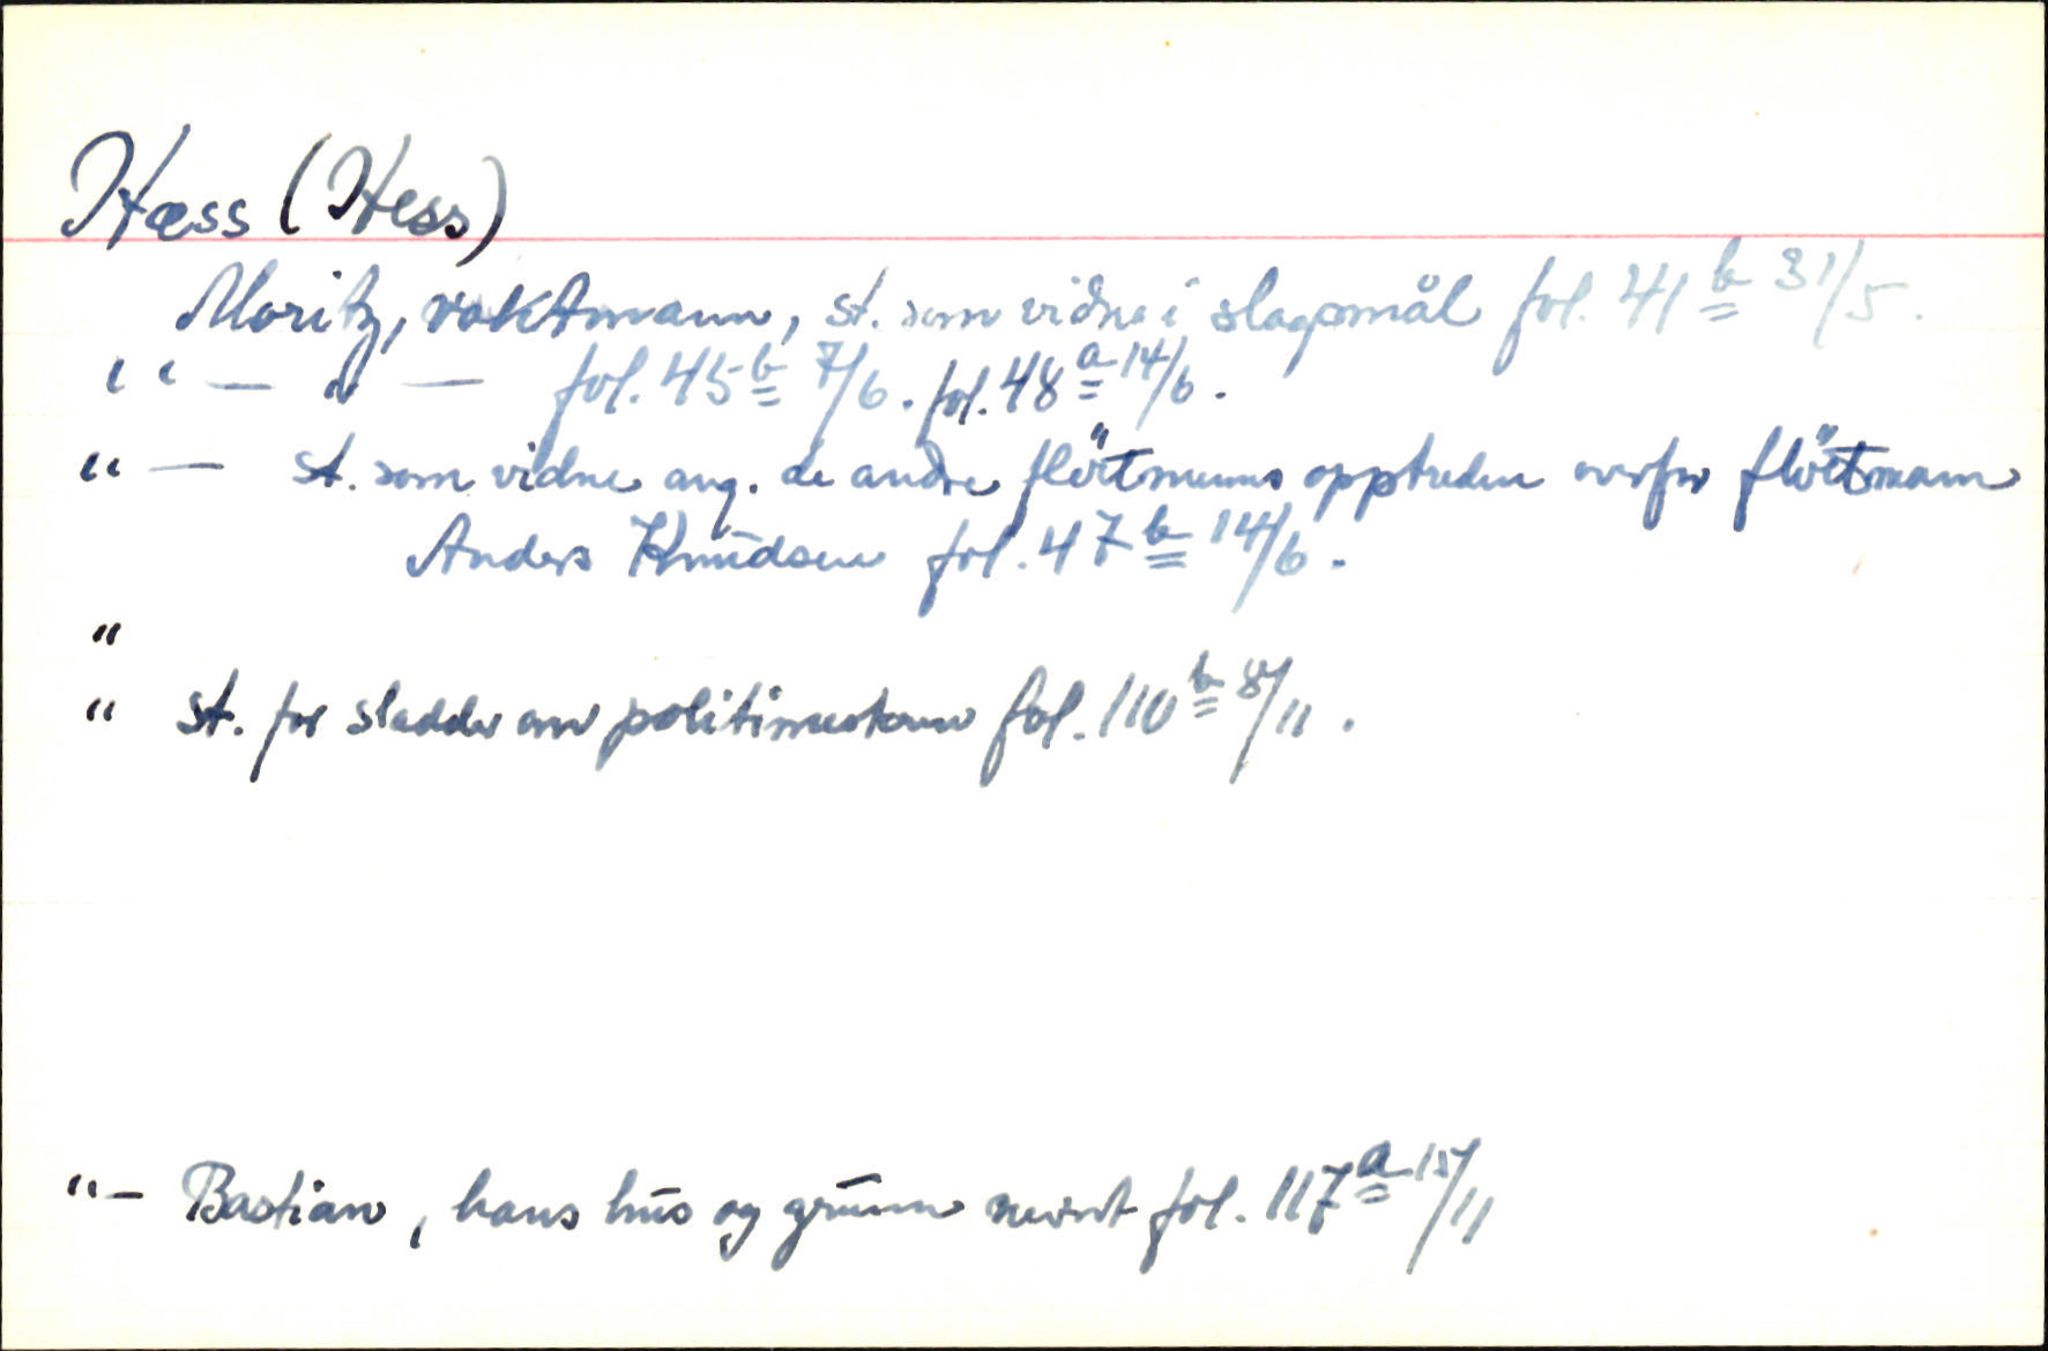 Hæss (Hess)
Moritz, vaktmann, st. som vidne i slagsmål fol. 41 b 31/5.
" — " — fol. 45 b 7/6. fol. 48 a 14/6.
" — st. som vidne ang. de andre flötmenns opptreden overfor flötmann
Anders Knudsen fol. 47 b 14/6.
"
" st. for sladder om politimesteren fol. 110 b 8/11.
" — Bastian, hans hus og grunn nevnt fol. 117 a 15/11